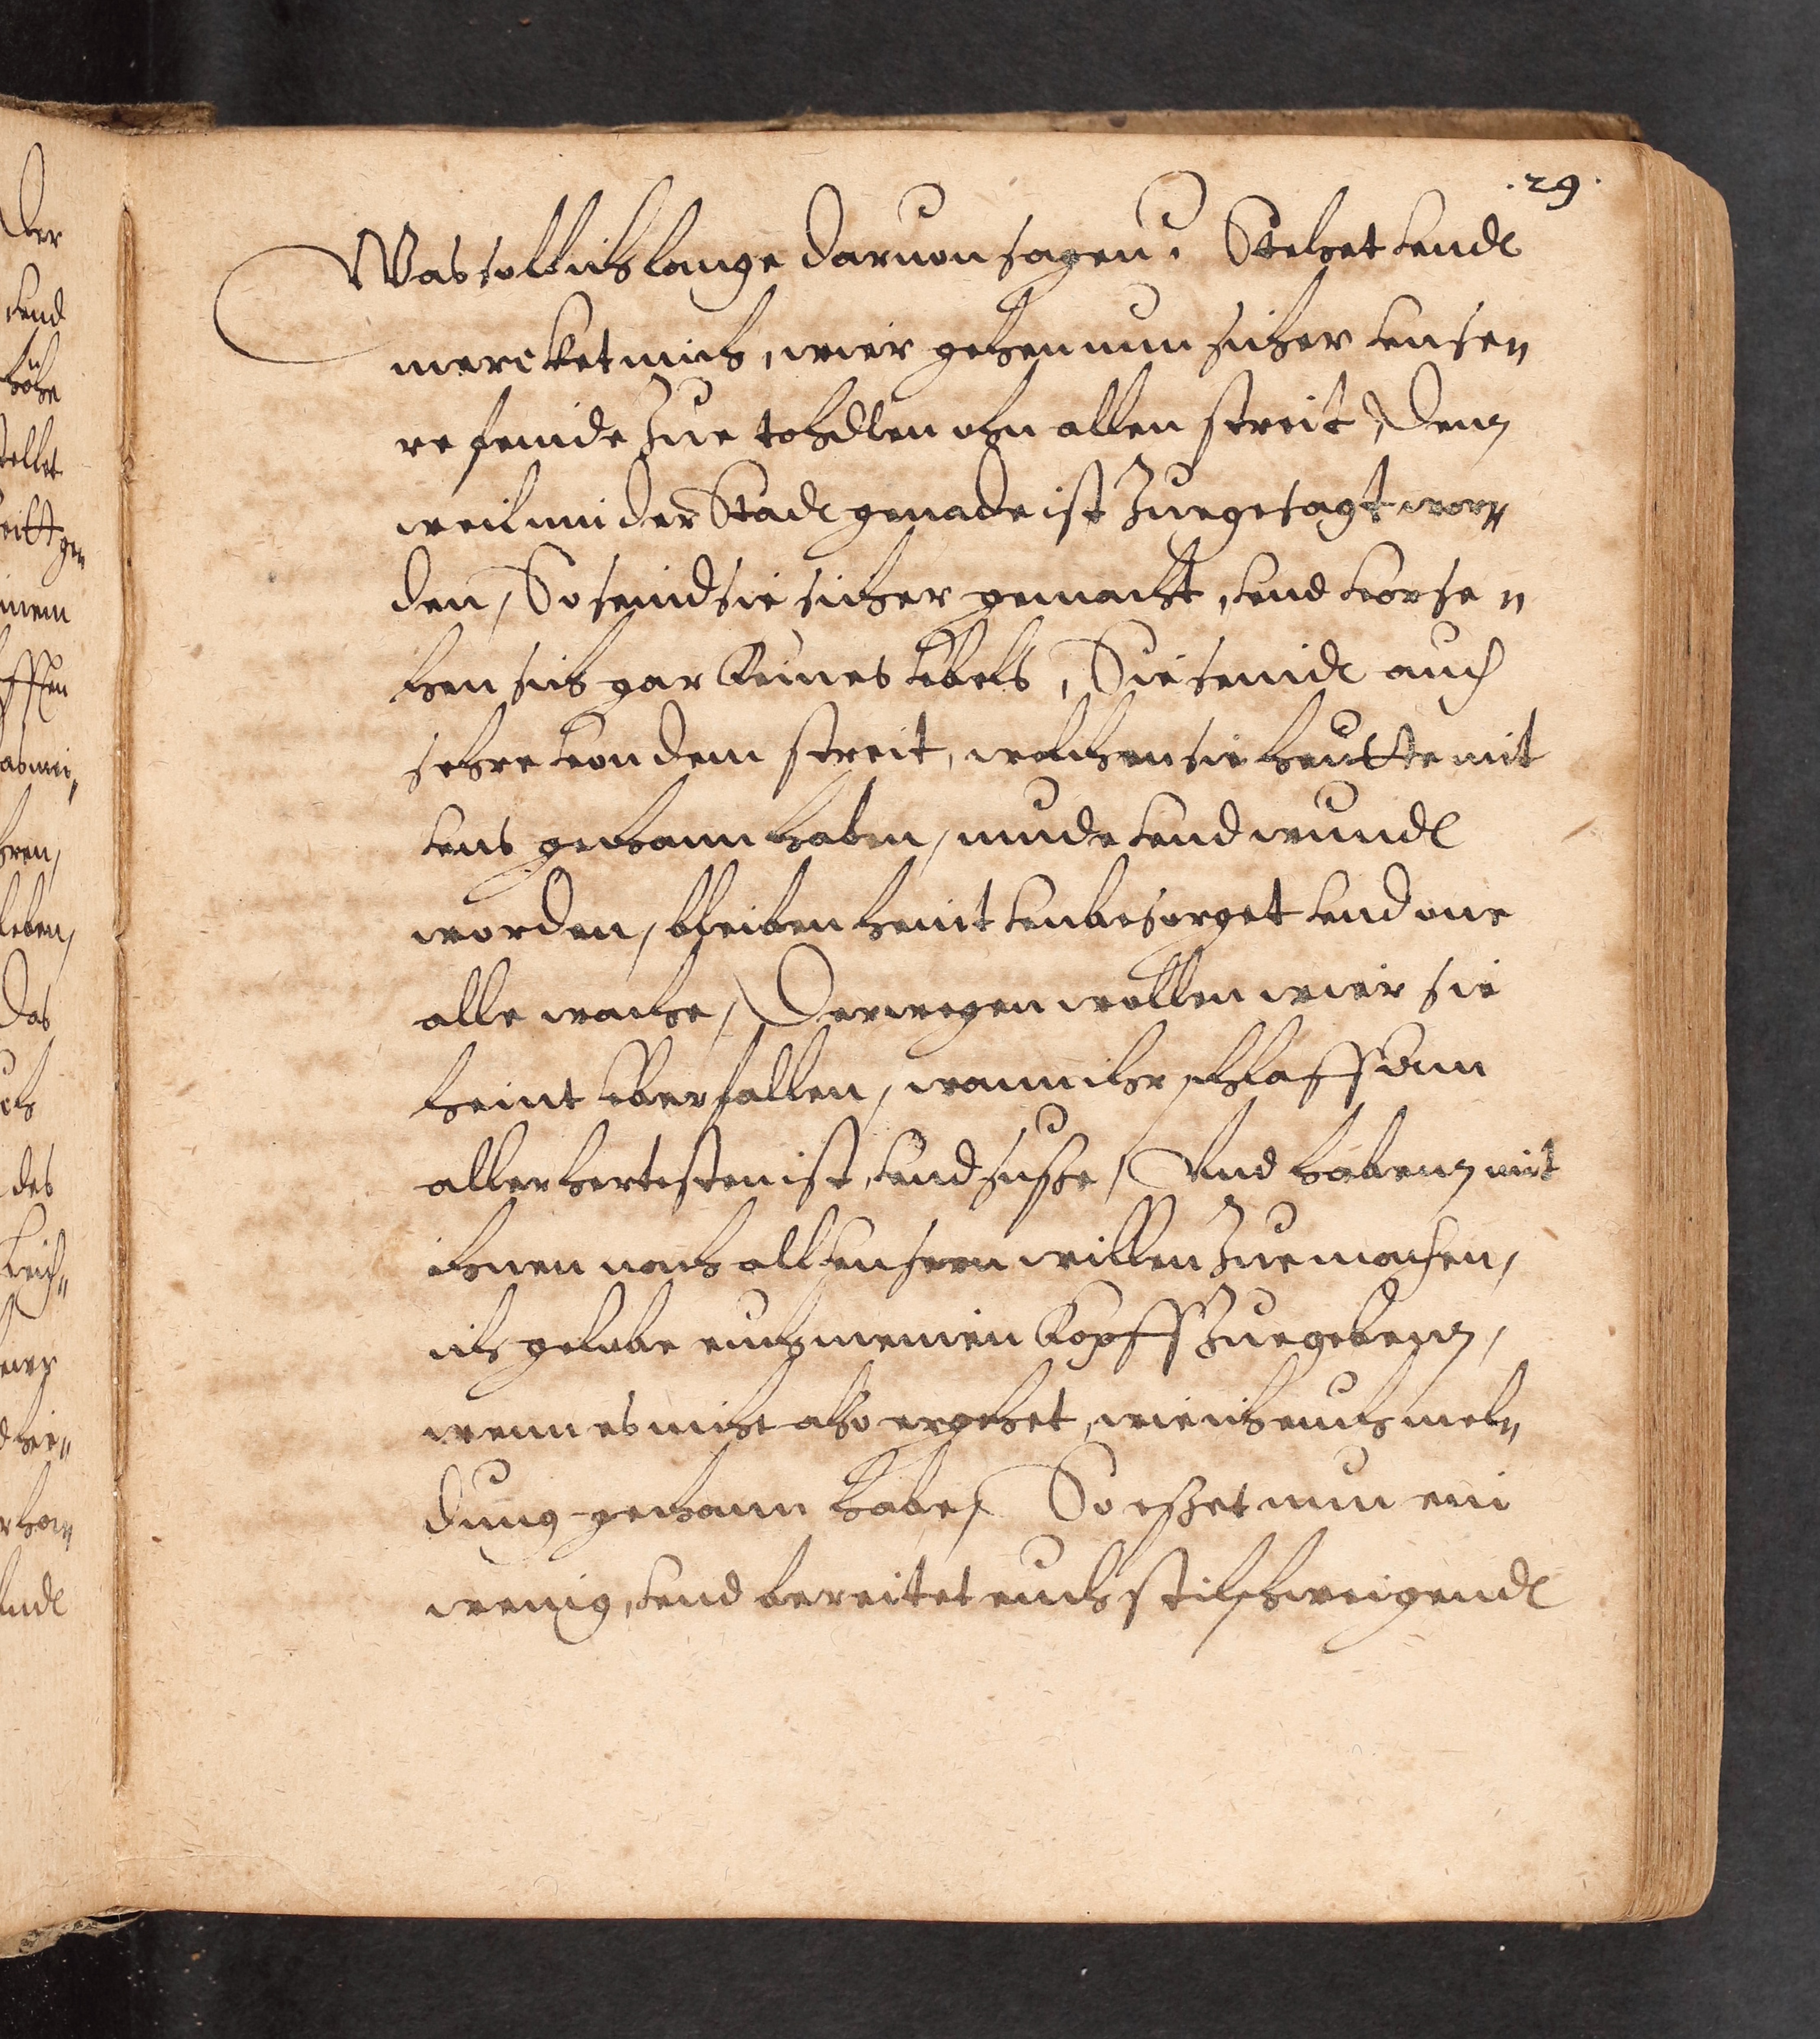 .29.
Was soll ich lange daruon sagen? Stehet vndt
mercket mich, wier gehen nun sicher vnse„
re feinde zue tohdten ohn allen streit, Denn
weil nun der Stadt genade ist zuegesagt wor„
den, So seind sie sicher gemacht, vnd vorse„
hen sich gar keines vbels, Sie seindt auch
sehre von dem streit, welchen sie heutte mit
vns gethann haben, mude vnd wundt
worden, bleiben heint vnbesorget vnd one
alle wache, Derwegen wollen wier sie
heint vberfallen, wann ihr schlaff am
allerhertesten ist, vnd susse, Vnd habenn mit
ihnen nach all vnserm willen zue machen,
ich gelobe euch meinen Kopff zue gebenn,
wenn es nicht also ergehet, wie ich euch mel„
dung gethann habe, So esset nun ein
wenig, vnd bereitet euch stilschweigendt
der
vnd
hohe
tellet
inem
hren,
leben,
das
des
ndt